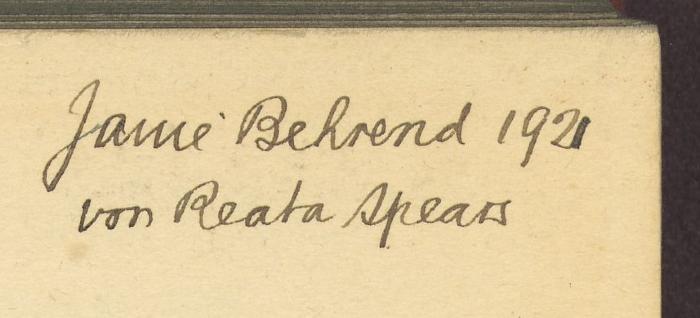 Jamie Behrend 1921
von Reata Spears